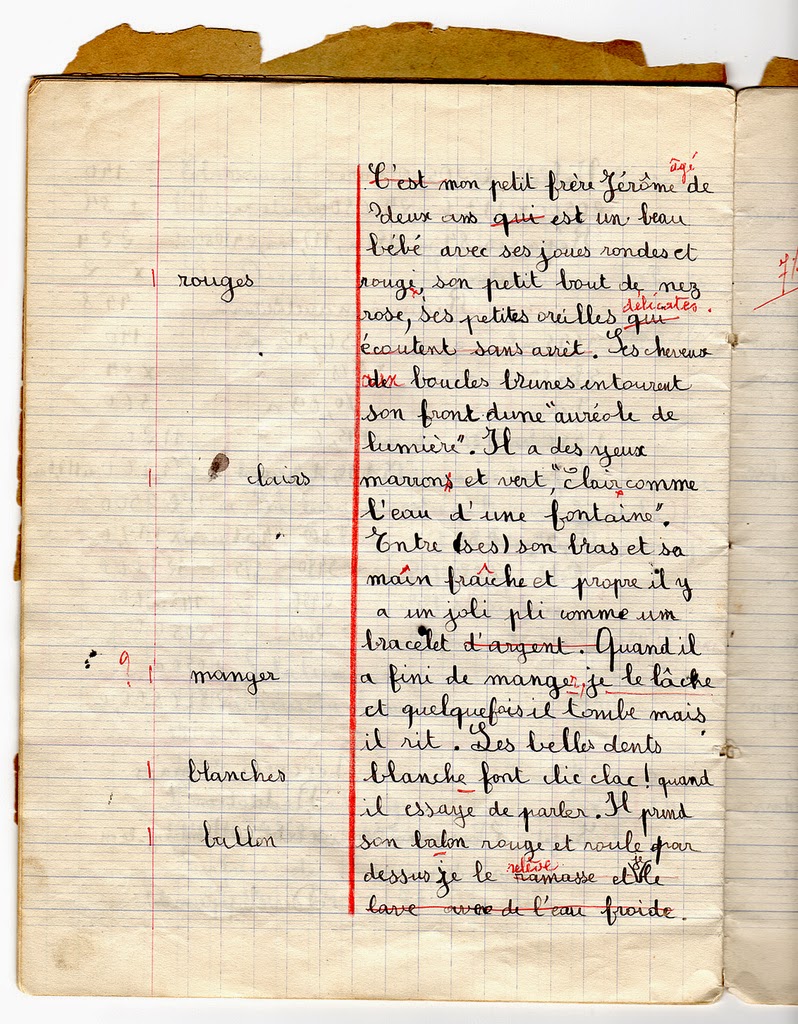 âgé
C'est mon petit frère Jérôme de
deux ans qui est un beau
bébé avec ses joues rondes et
rouges rouge, son petit bout de nez
délicates.
rose, ses petites oreilles qui
écoutent sans arrêt. Ses cheveux
aux boucles brunes entourent
son front dune "auréole de
lumière". Il a des yeux
clairs marrons et vert, "clair comme
l'eau d'une fontaine".
Entre (ses) son bras et sa
main fraîche et propre il y
a un joli pli comme um
bracelet d'argent. Quand il
? manger a fini de manger, je le lâche
et quelquefois il tombe mais
il rit. Ses belles dents
blanches blanche font clic clac! quand
il essaye de parler. Il prend
ballon son balon rouge et roule par
relève
dessus je le ramasse et le
lave avec de l'eau froide.